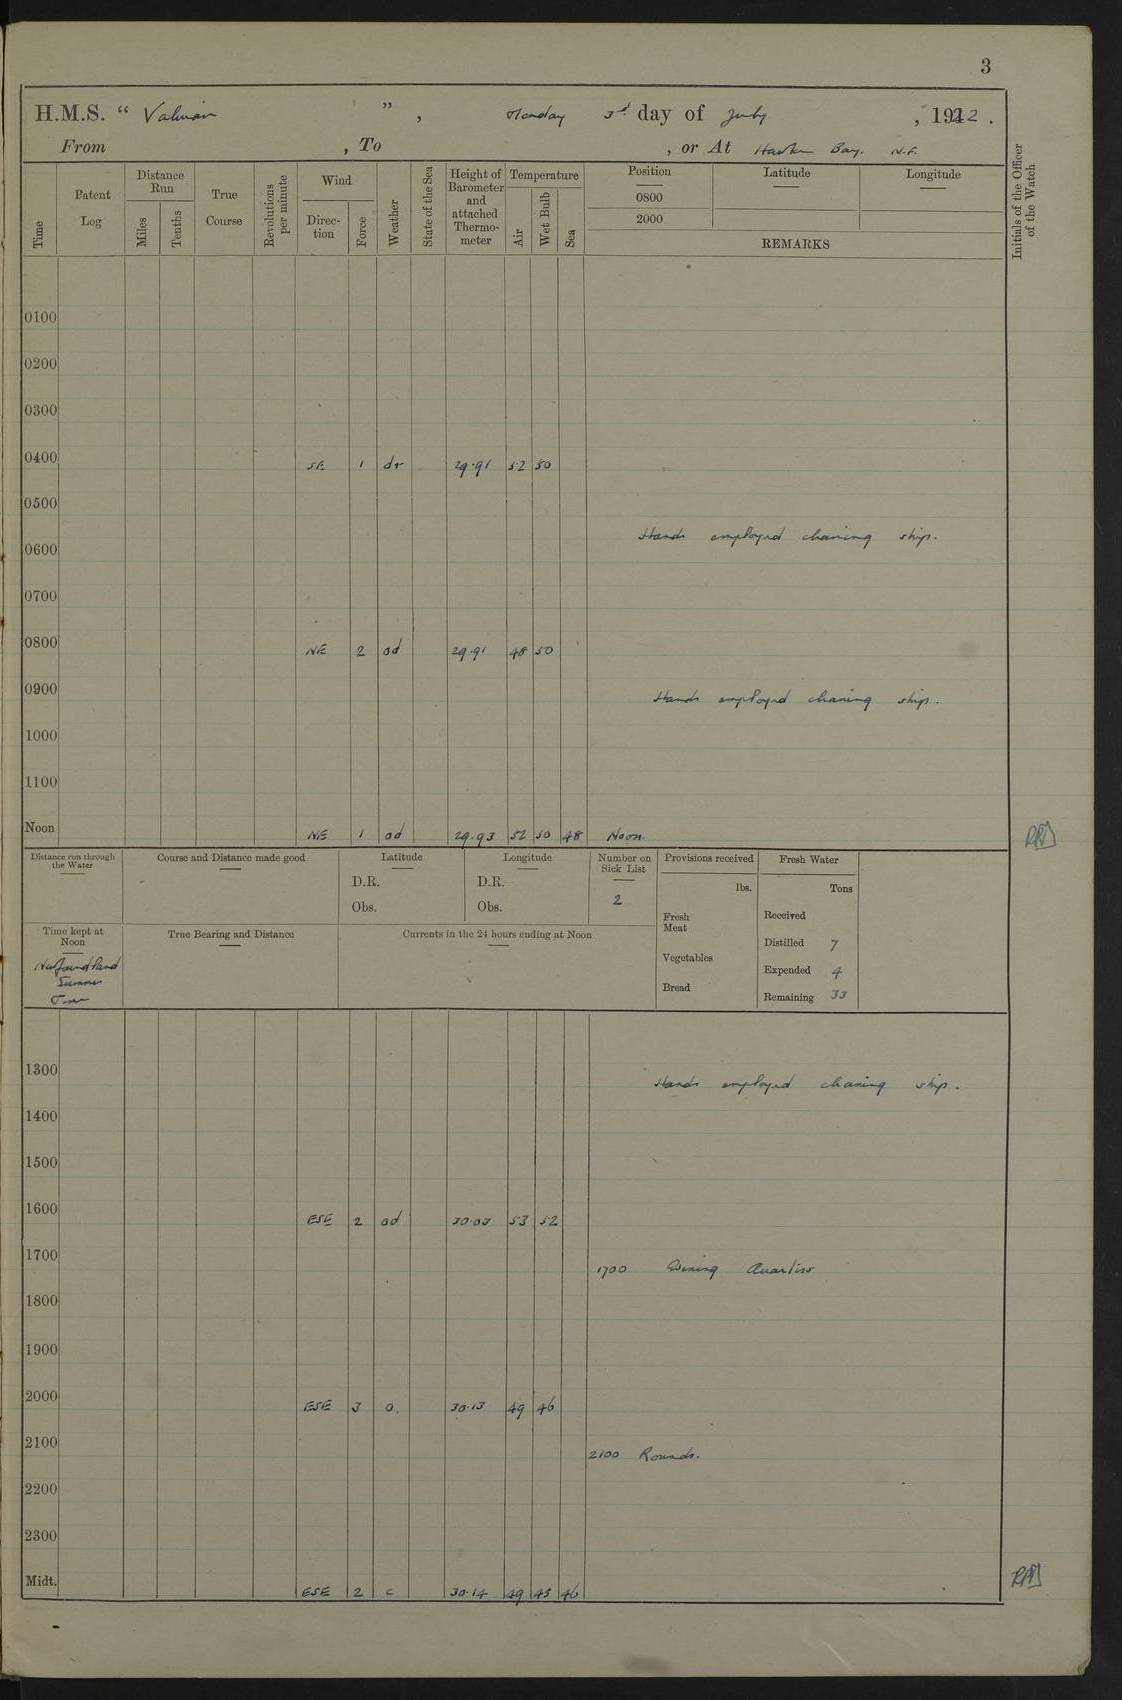 3
H.M.S. “ Valerian ”, Monday 3rd day of July, 1922.
From , To , or At Hawke Bay. N.F.
Time
Patent Log
Distance Run
Miles
Tenths
True Course
Revolutions per minute
Wind
Direction
Force
Weather
State of the Sea
Height of Barometer and attached Thermometer
Temperature
Air
Wet Bulb
Sea
Position
Latitude
Longitude
0800
2000
REMARKS
Initials of the Officer of the Watch
0100
0200
0300
0400 SE 1 dr 29.91 52 50
0500
Hands employed cleaning ship.
0600
0700
0800 NE 2 od 29.91 48 50
0900 Hands employed cleaning ship.
1000
1100
Noon NE 1 od 29.93 52 50 48 Noon.
Distance run through the Water
Course and Distance made good
Latitude
D.R.
Obs.
Longitude
D.R.
Obs.
Number on Sick List
2
Provisions received
lbs.
Fresh Meat
Vegetables
Bread
Fresh Water
Tons
Received
Distilled 7
Expended 4
Remaining 33
Time kept at Noon
Newfoundland
Summer
Time
True Bearing and Distance
Currents in the 24 hours ending at Noon
1300 Hands employed cleaning ship.
1400
1500
1600 ESE 2 od 30.03 53 52
1700 1700 Evening Quarters
1800
1900
2000 ESE 3 o. 30.13 49 46
2100 2100 Rounds.
2200
2300
Midt. ESE 2 c 30.14 49 45 46